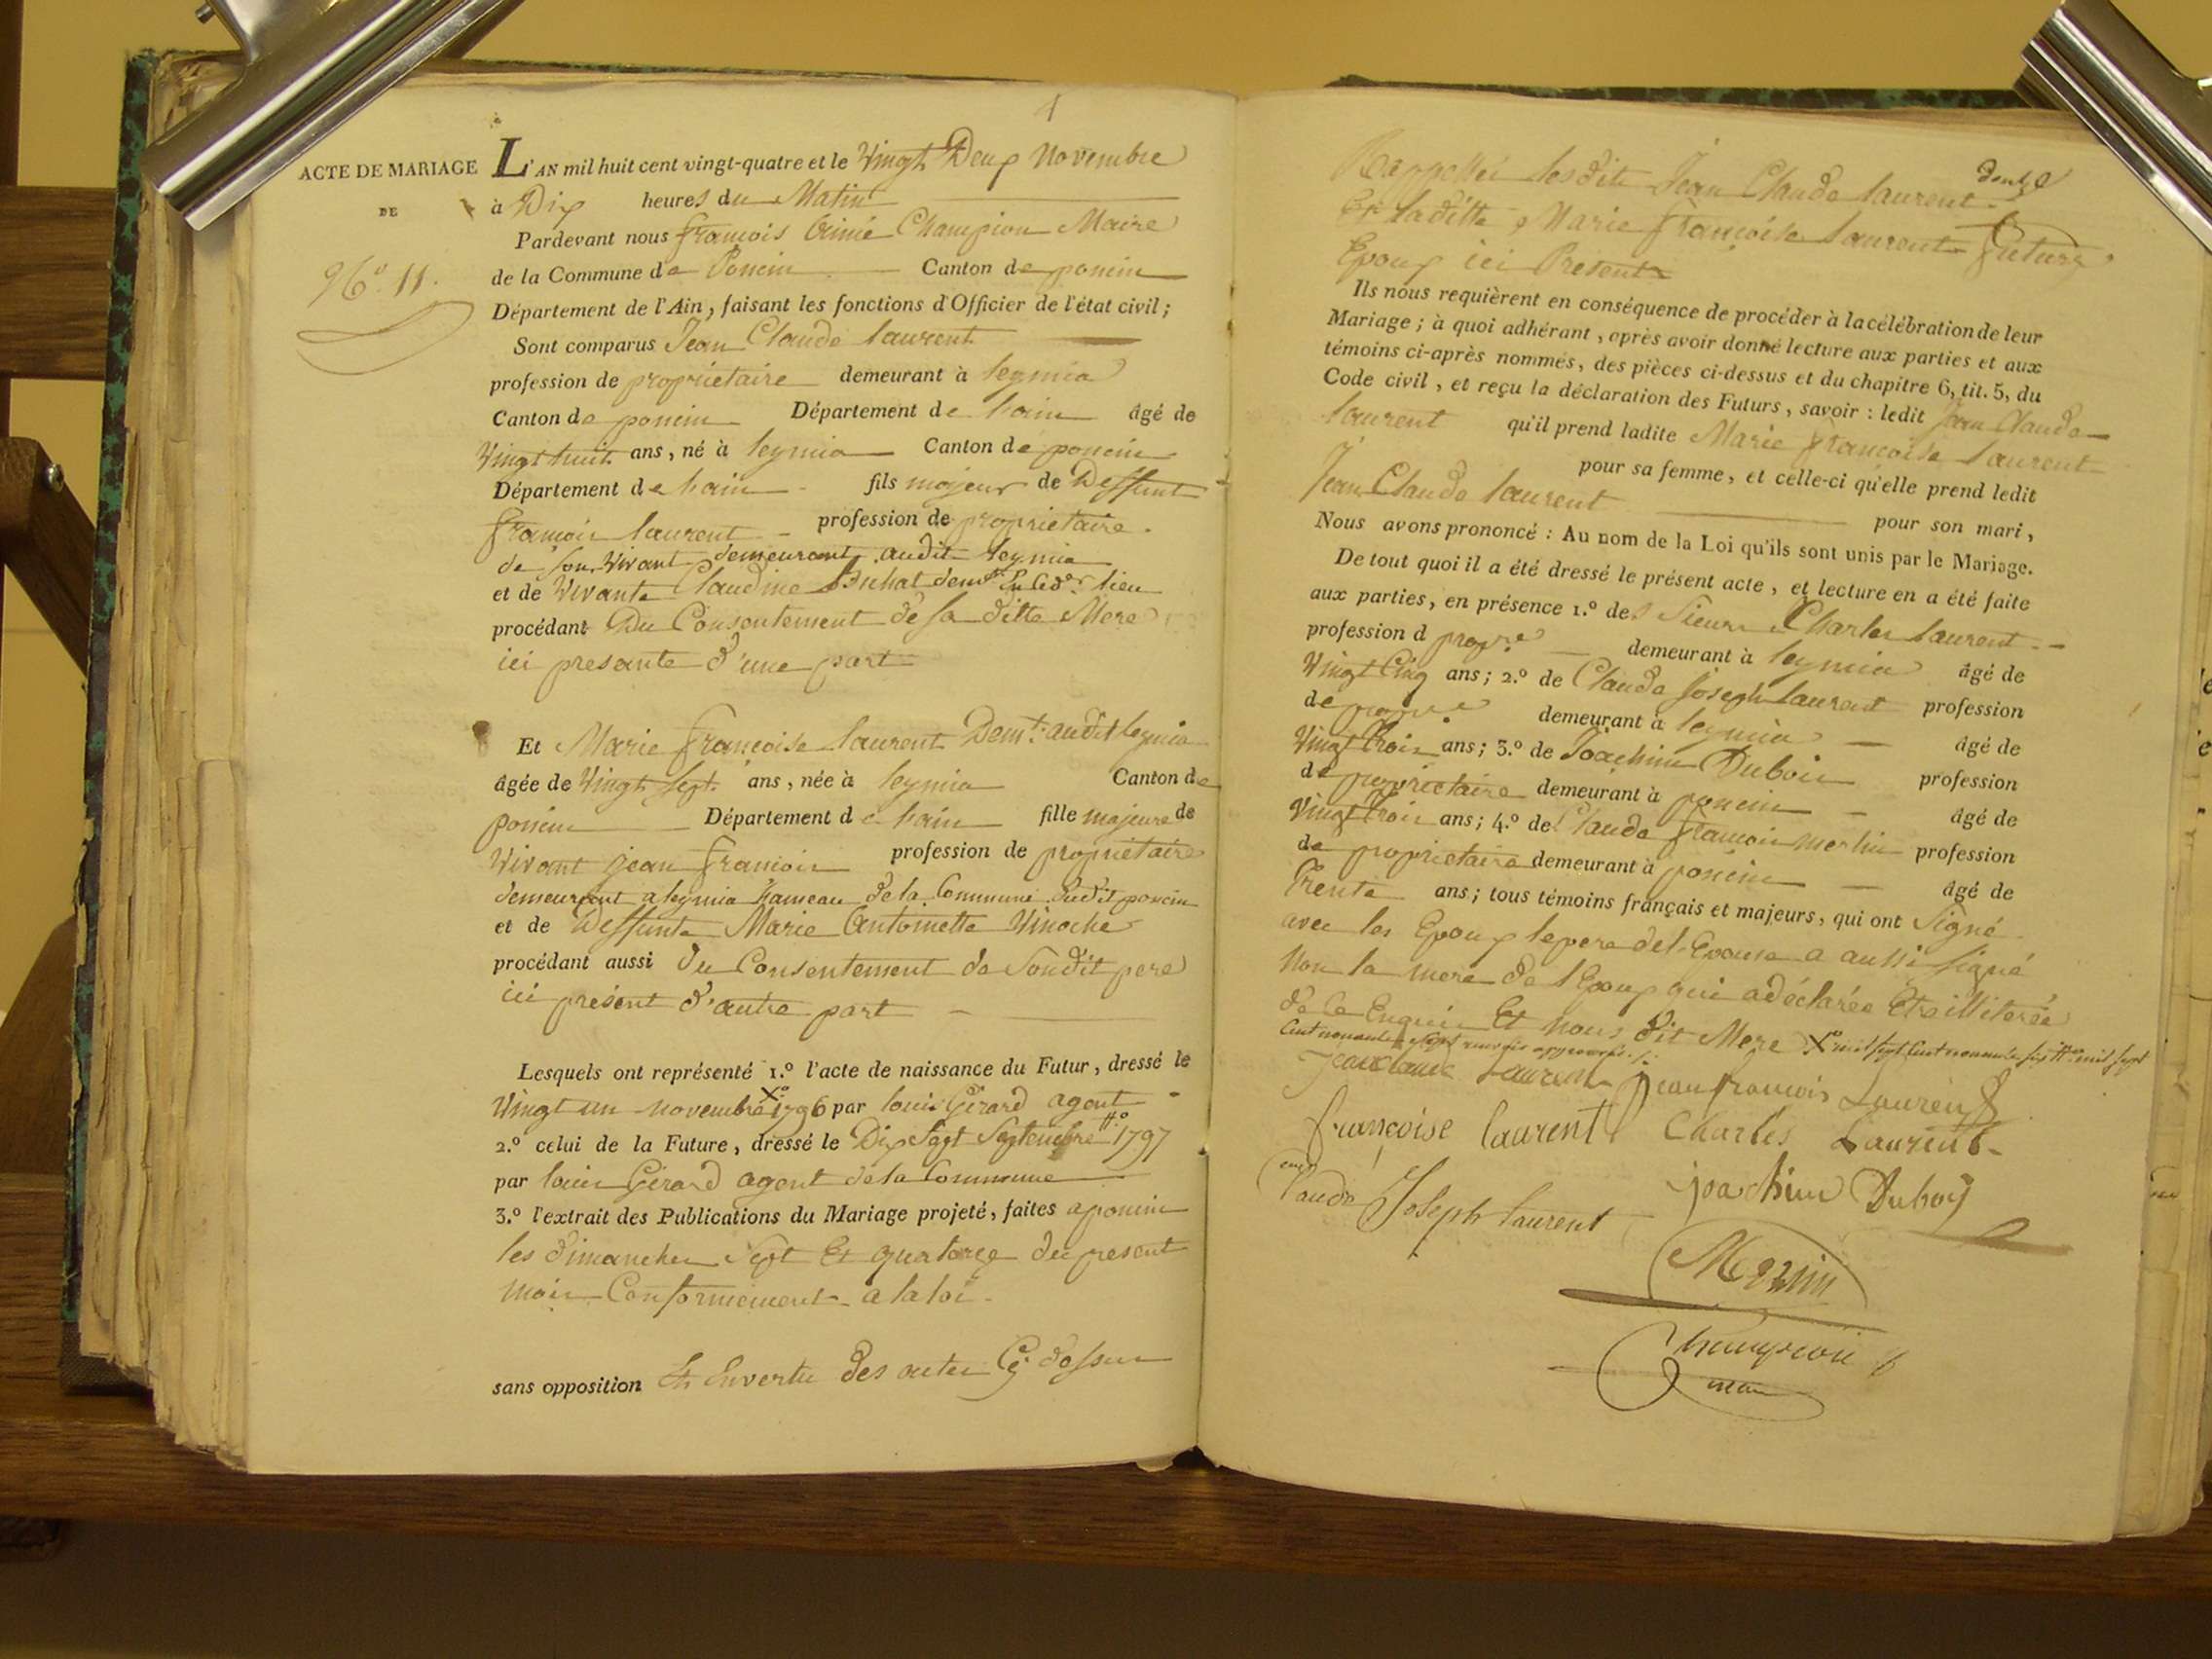 ACTE DE MARIAGE
DE
N.º 11.
L'AN mil huit cent vingt-quatre et le Vingt Deux Novembre
à Dix heures du Matin
Pardevant nous françois Champion Maire
de la Commune de Poncin Canton de poncin
Département de l'Ain, faisant les fonctions d'Officier de l'état civil;
Sont comparus Jean Claude laurent
profession de propriétaire demeurant à leymia
Canton de poncin Département de lain âgé de
Vingt huit ans, né à leymia Canton de poncin
Département de lain fils majeur de Deffunt
françois laurent profession de proprietaire
de son Vivant demeurant audit leymia
et de Vivante Claudine demt lieu
procédant Du Consentement de sa ditte Mere
ici presante d'une part
Et Marie françoise laurent Demt. audit leymia
âgée de Vingt Sept ans, née à leymia Canton de
poncin Département de lain fille majeure de
Vivant jean françois profession de propriétaire
demeurant a leymia hameau de la Commune dudit poncin
et de Deffunte Marie Antoinette Vinoche
procédant aussi du Consentement de Sondit pere
ici présent d'autre part
Lesquels ont représenté 1.º l'acte de naissance du Futur, dressé le
Vingt un novembre Xº 1796 par louis Girard agent
2.º celui de la Future, dressé le Dix Sept Septembre #º 1797
par louis Girard agent de la Commune
3.º l'extrait des Publications du Mariage projeté, faites a poncin
les dimanches Sept Et quatorze du present
mois Conformément a la loi
sans opposition Et Envertu des actes Cy dessus
Rappellés lesdits Jean Claude laurent
Et laditte Marie françoise laurent future
Epoux ici Present
Ils nous requièrent en conséquence de procéder à la célébration de leur
Mariage; à quoi adhérant, après avoir donné lecture aux parties et aux
témoins ci-après nommés, des pièces ci-dessus et du chapitre 6, tit. 5, du
Code civil, et reçu la déclaration des Futurs, savoir: ledit Jean Claude
laurent qu'il prend ladite Marie françoise laurent
pour sa femme, et celle-ci qu'elle prend ledit
Jean Claude laurent pour son mari,
Nous avons prononcé: Au nom de la Loi qu'ils sont unis par le Mariage.
De tout quoi il a été dressé le présent acte, et lecture en a été faite
aux parties, en présence 1.º des Sieurs Charles laurent
profession d propre demeurant à leymia âgé de
Vingt Cinq ans; 2.º de Claude Joseph laurent profession
de propre demeurant à leymia âgé de
Vingt trois ans; 3.º de Joachim Dubois profession
de propriétaire demeurant à poncin âgé de
Vingt trois ans; 4.º de Claude françois merlin profession
de proprietaire demeurant à poncin âgé de
trente ans; tous témoins français et majeurs, qui ont Signé
avec les Epoux le pere de l'Epouse a aussi signé
Non la mere de l'Epoux qui a déclarée Etre illiterée
de ce Enquis Et nous dit Mere Xº mil sept Cent nonante six #º mil sept
Cent nonante sept
Jean claude Laurent jean françois Laurent
françoise laurent Charles Laurent
Claude Joseph laurent joachim Duboy
Merlin
Champion